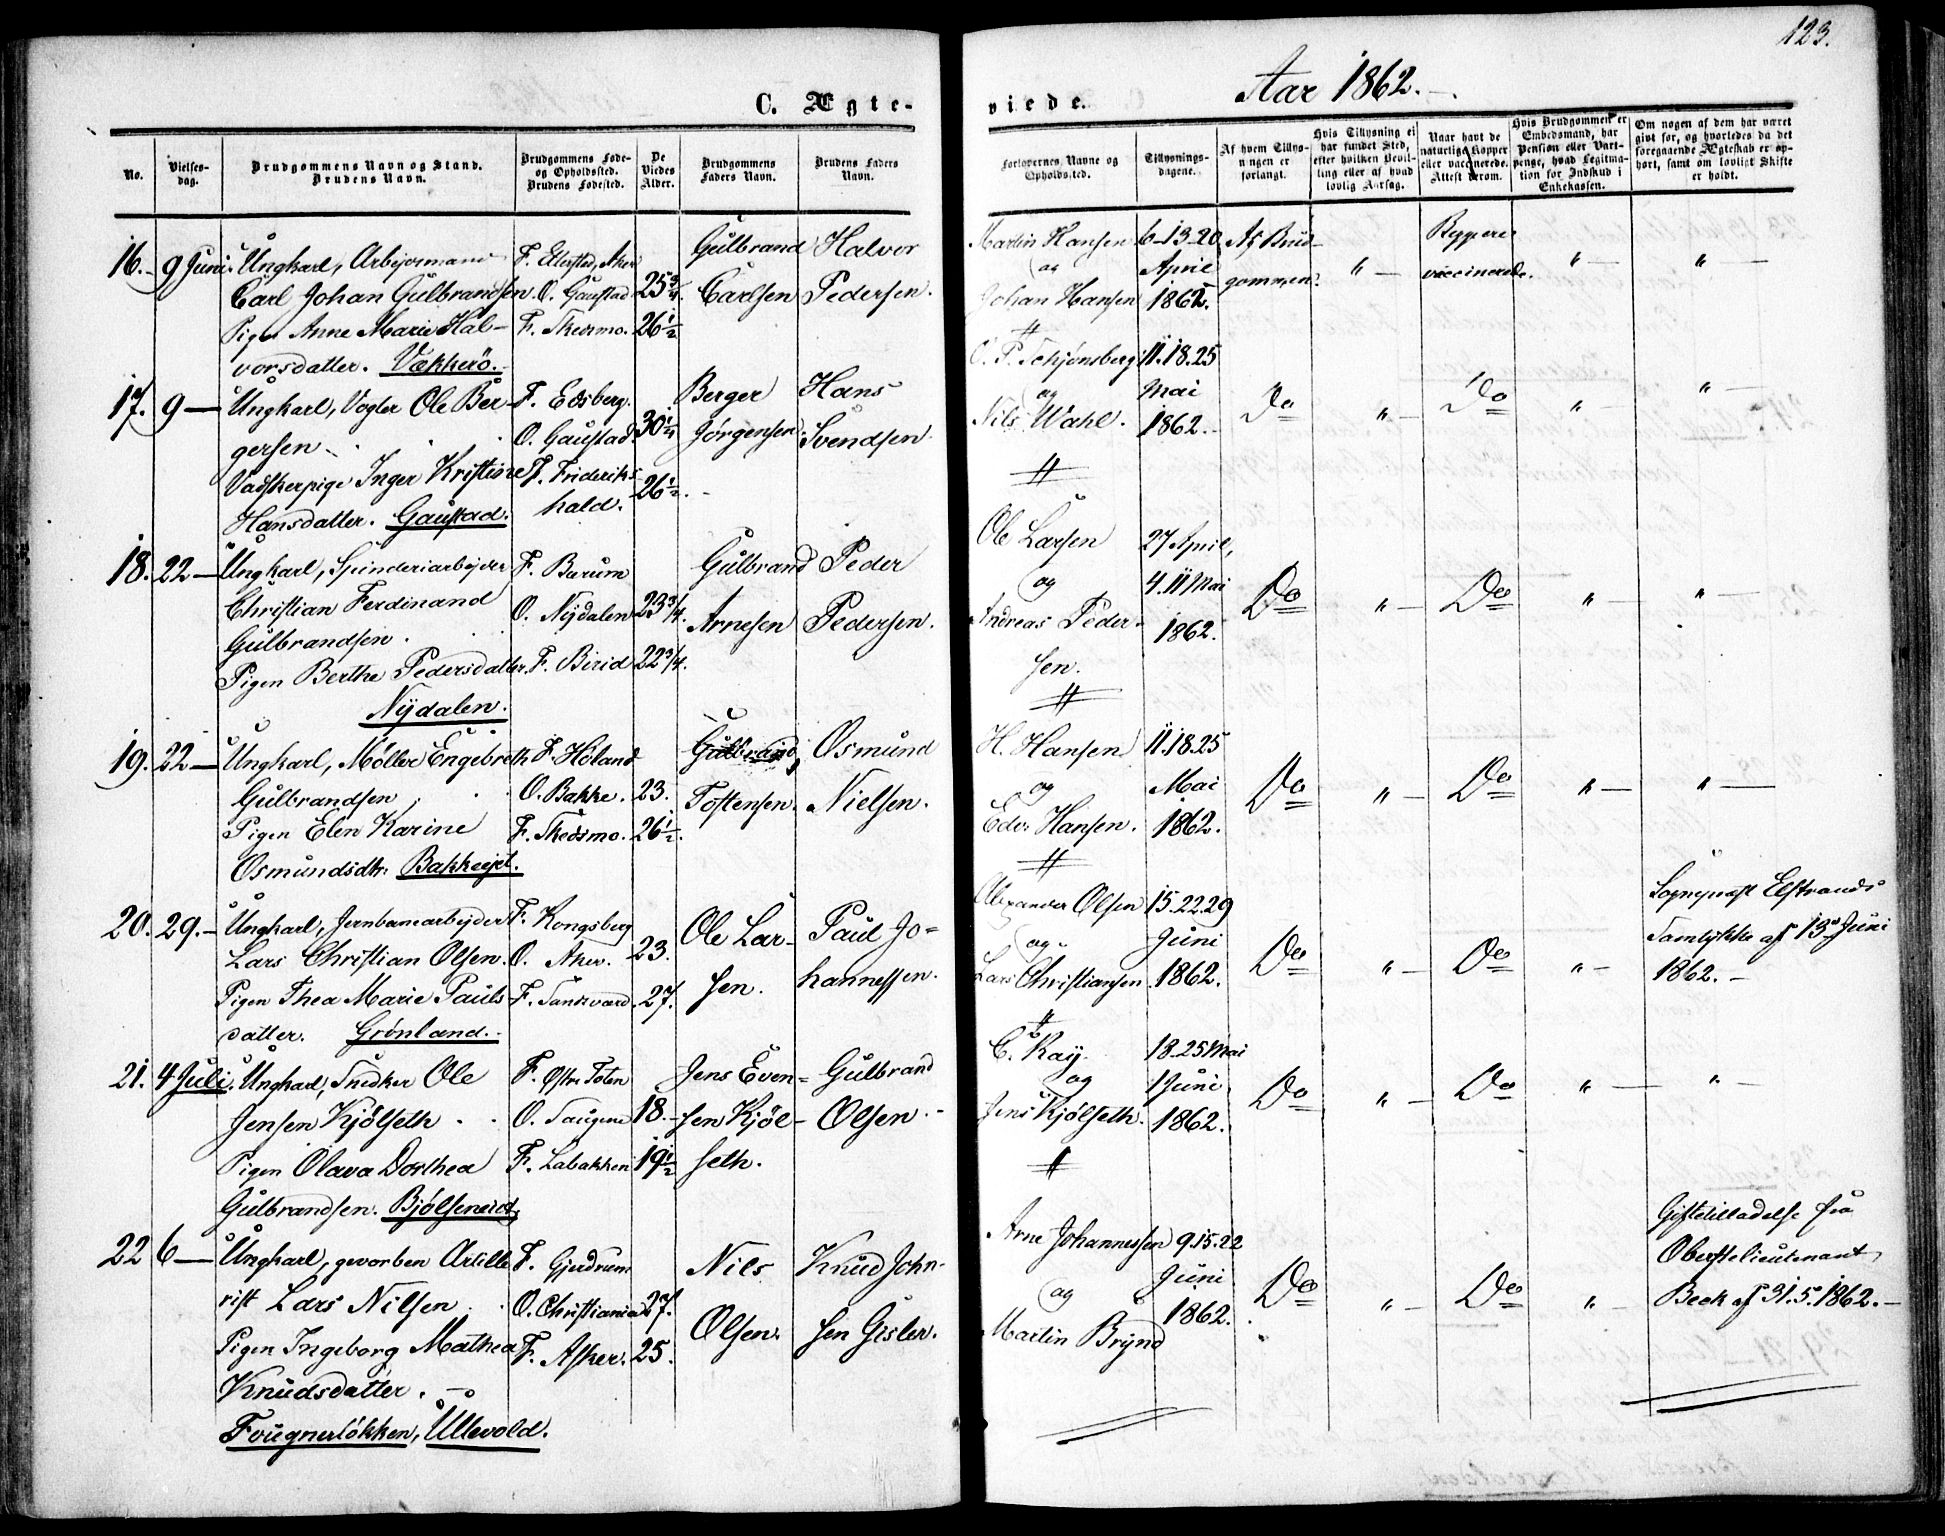 123.
C. Ægte-
viede.
Aar 1862.
No.
Vielses-
dag.
Brudgommens Navn og Stand.
Brudens Navn.
Brudgommens Føde-
og Opholdssted.
Brudens Fødested.
De
Viedes
Alder.
Brudgommens
Faders Navn.
Brudens Faders
Navn.
Forlovernes Navne og
Opholdssted.
Tillysnings-
dagene.
Af hvem Tillys-
ningen er
forlangt.
Hvis Tillysning ei
har fundet Sted,
efter hvilken Bevil-
ling eller af hvad
lovlig Aarsag.
Naar havt de
naturlige Kopper
eller vaccinerede.
Attest derom.
Hvis Brudgommen er
Embedsmand, har
Pension eller Vart-
penge, hvad Legitima-
tion for Indskud i
Enkekassen.
Om nogen af dem har været
gift før, og hvorledes da det
foregaaende Ægteskab er op-
hørt, samt om lovligt Skifte
er holdt.
16. 9 Juni. Ungkarl, Arbejdsmand F. Ellested, Aker 25 3/4. Gulbrand Halvor
Carl Johan Gulbrandsen O. Gaustad Carlsen Pedersen.
Pigen Anne Marie Hal- F. Skedsmo. 26 1/2
vorsdatter. Vækkerö.
Martin Hansen 6-13-20 Af Brud-
og April gommen. " — vaccinerede. " — " —
Johan Hansen 1862.
17. 9 — Ungkarl, Vogter Ole Ber- F. Edsberg. 30 1/4 Berger Hans
gersen O. Gaustad. Jörgensen. Svendsen.
Vadskerpige Inger Kristine F. Frideriks- 26 1/2.
Hansdatter. Gaustad. hald.
O. P. Schjønsberg 11.18.25
og Mai Do " — Do " — " —
Nils Wahl. 1862.
18. 22 — Ungkarl, Spinderiarbejder F. Barum Gulbrand Peder
Christian Ferdinand O. Nydalen 23 3/4. Arnesen Pedersen.
Gulbrandsen.
Pigen Berthe Pedersdatter. F. Birid 22 3/4.
Nydalen.
Ole Larsen 27 April,
og 4.11 Mai Do " — Do " — " —
Andreas Peder- 1862.
sen.
19. 22 — Ungkarl, Møller Engebreth F. Höland Gulbrand Osmund
Gulbrandsen O. Bakke. 23. Tostensen. Nielsen.
Pigen Elen Karine F. Skedsmo. 26 1/2.
Osmundsdtr. Bakkeejet.
H. Hansen 11.18.25
og Mai Do " — Do " — " —
Edv. Hansen. 1862.
20. 29. — Ungkarl, Jernbanearbejder F. Kongsberg Ole Lar- Paul Jo-
Lars Christian Olsen. O. Aker. 23. sen. hannessen.
Pigen Thea Marie Pauls- F. Sandsværd. 27.
datter. Grönland.
Alexander Olsen 15.22.29 Sognepræst Elstrands
og Juni Do " — Do " — Samtykke af 13de Juni
Lars Christiansen. 1862. 1862. —
21. 4 Juli. Ungkarl, Snedker Ole F. Østre Toten Jens Even- Gulbrand
Jensen Kjölseth O. Saugene 18. — sen Kjöl- Olsen. —
Pigen Olava Dorthea F. Labakken 19 1/2 seth.
Gulbrandsen. Bjölseneiet.
C. Kay. 18.25 Mai
og 1 Juni Do " — Do " — " —
Jens Kjölseth. 1862.
22 6 — Ungkarl, gevorben Artille- F. Gjerdrum Nils Knud John-
rist Lars Nilsen O. Christiania 27. Olsen. sen Gisler.
Pigen Ingeborg Mathea F. Asker. 25.
Knudsdatter. —
Fougnerlökken, Ullevold.
Arne Johannessen 9.15.22 Giftetilladelse fra
og Juni Do " — Do " — Oberstelieutenant
Martin Brynd 1862. Beck af 31.5.1862. —